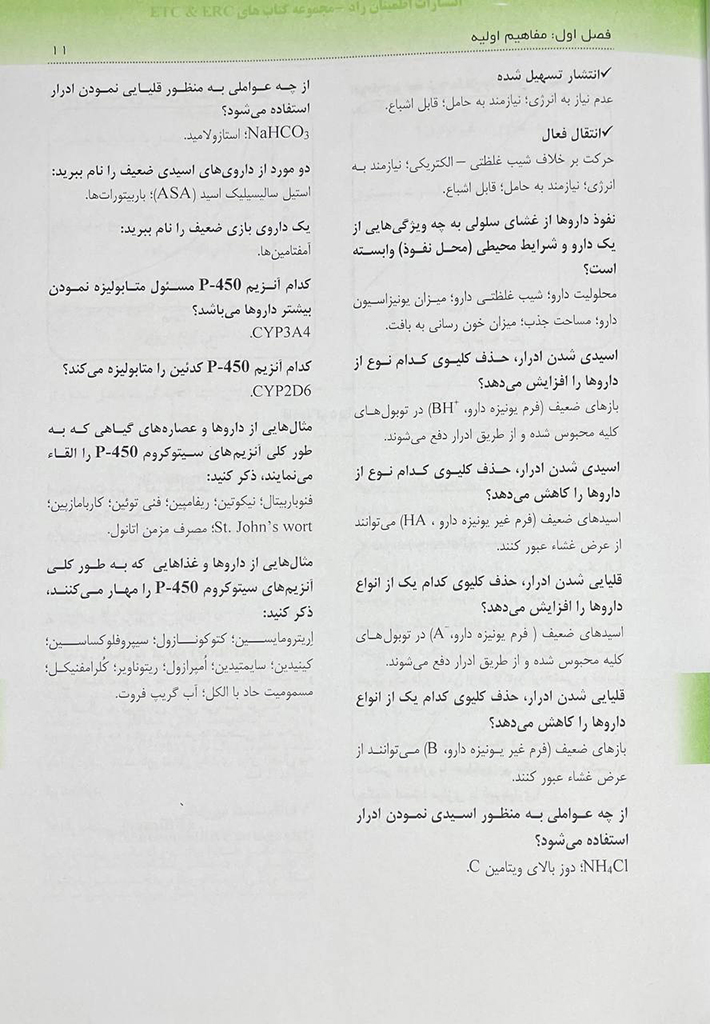 فصل اول: مفاهیم اولیه
۱۱
✓انتشار تسهیل شده
عدم نیاز به انرژی؛ نیازمند به حامل؛ قابل اشباع.
✓انتقال فعال
حرکت بر خلاف شیب غلظتی – الکتریکی؛ نیازمند به
انرژی؛ نیازمند به حامل؛ قابل اشباع.
نفوذ داروها از غشای سلولی به چه ویژگی‌هایی از
یک دارو و شرایط محیطی (محل نفوذ) وابسته
است؟
محلولیت دارو؛ شیب غلظتی دارو؛ میزان یونیزاسیون
دارو؛ مساحت جذب؛ میزان خون رسانی به بافت.
اسیدی شدن ادرار، حذف کلیوی کدام نوع از
داروها را افزایش می‌دهد؟
بازهای ضعیف (فرم یونیزه دارو، BH⁺) در توبول‌های
کلیه محبوس شده و از طریق ادرار دفع می‌شوند.
اسیدی شدن ادرار، حذف کلیوی کدام نوع از
داروها را کاهش می‌دهد؟
اسیدهای ضعیف (فرم غیر یونیزه دارو ، HA) می‌توانند
از عرض غشاء عبور کنند.
قلیایی شدن ادرار، حذف کلیوی کدام یک از انواع
داروها را افزایش می‌دهد؟
اسیدهای ضعیف ( فرم یونیزه دارو، A⁻) در توبول‌های
کلیه محبوس شده و از طریق ادرار دفع می‌شوند.
قلیایی شدن ادرار، حذف کلیوی کدام یک از انواع
داروها را کاهش می‌دهد؟
بازهای ضعیف (فرم غیر یونیزه دارو، B) می‌توانند از
عرض غشاء عبور کنند.
از چه عواملی به منظور اسیدی نمودن ادرار
استفاده می‌شود؟
NH₄Cl؛ دوز بالای ویتامین C.
از چه عواملی به منظور قلیایی نمودن ادرار
استفاده می‌شود؟
NaHCO₃؛ استازولامید.
دو مورد از داروی‌های اسیدی ضعیف را نام ببرید:
استیل سالیسیلیک اسید (ASA)؛ باربیتورات‌ها.
یک داروی بازی ضعیف را نام ببرید:
آمفتامین‌ها.
کدام آنزیم P-450 مسئول متابولیزه نمودن
بیشتر داروها می‌باشد؟
CYP3A4.
کدام آنزیم P-450 کدئین را متابولیزه می‌کند؟
CYP2D6.
مثال‌هایی از داروها و عصاره‌های گیاهی که به
طور کلی آنزیم‌های سیتوکروم P-450 را القاء
می‌نمایند، ذکر کنید:
فنوباربیتال؛ نیکوتین؛ ریفامپین؛ فنی توئین؛ کاربامازپین؛
St. John’s wort؛ مصرف مزمن اتانول.
مثال‌هایی از داروها و غذاهایی که به طور کلی
آنزیم‌های سیتوکروم P-450 را مهار می‌کنند،
ذکر کنید:
اِریترومایسین؛ کتوکونازول؛ سیپروفلوکساسین؛
کینیدین؛ سایمتیدین؛ اُمپرازول؛ ریتوناویر؛ کُلرامفنیکل؛
مسمومیت حاد با الکل؛ آب گریپ فروت.